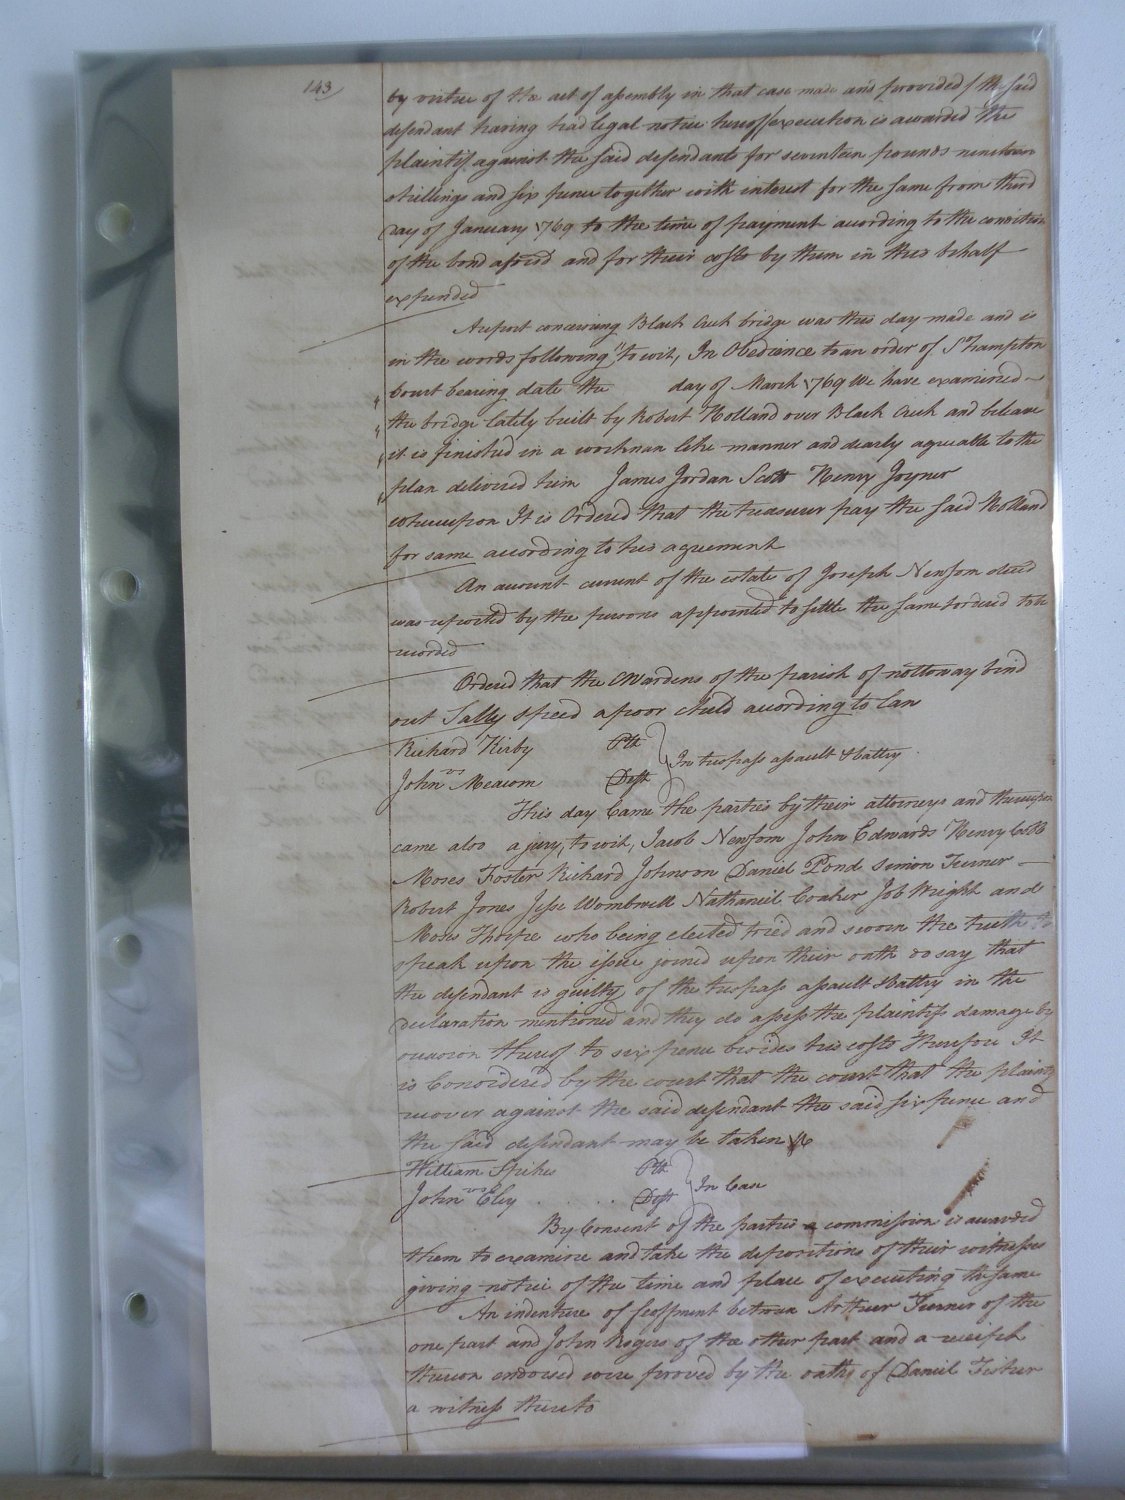 143
by virtue of the act of assembly in that case made and provided / the said
defendant having had legal notice hereof / execution is awarded the
plaintif against the said defendants for seventeen pounds nineteen
shillings and six pence together with interest for the same from third
day of January 1769 to the time of payment acording to the condition
of the bond afores'd and for their costs by them in this behalf
expended
A report concerning Black Creek bridge was this day made and is
in the words following "to wit, In Obedience to an order of S°hampton
" Court bearing date the day of March 1769 We have examined
" the bridge lately built by Robert Holland over Black Creek and beleave
" it is finished in a workman like manner and dearly agreeable to the
" plan delivered him James Jordan Scott Henry Joyner
whereupon It is Ordered that the treasurer pay the said Holland
for same according to his agreement
An account current of the estate of Joseph Newsom deced
was reported by the persons appointed to settle the same & ordered to be
recorded
Ordered that the CWardens of the parish of nottoway bind
out Sally Speed a poor child according to law
Richard Kirby Plt
vs In trespass assault & battry
John Meacom Deft
This day Came the parties by their attorneys and thereupon
came also a jury, to wit, Jacob Newsom John Edwards Henry Cobb
Moses Foster Richard Johnson Daniel Pond Simon Turner
Robert Jones Jesse Wombwell Nathaniel Coaker Job Wright and
Moses Thorpe who being elected tried and sworn the truth to
speak upon the issue joined upon their oath do say that
the defendant is guilty of the trespass assault & battry in the
declaration mentioned and they do assess the plaintifs damage by
occasion thereof to six pence besides his costs Therefore It
is Considered by the court that the court that the plaintif
recover against the said defendant the said six pence and
the said defendant may be taken &c
William Spikes Plt
vs In Case
John Eley . . . . Deft
By Consent of the parties a commission is awarded
them to examine and take the depositions of their witnesses
giving notice of the time and place of executing the same
An indenture of feoffment between Arthur Turner of the
one part and John Rogers of the other part and a receipt
thereon endorsed were proved by the oaths of Daniel Fisher
a witness thereto